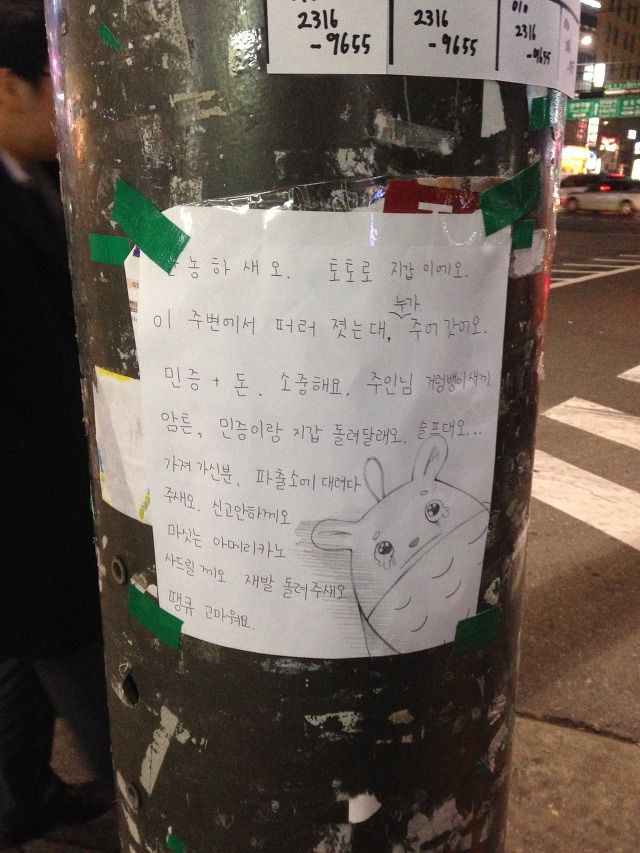 2316
-9655
2316
-9655
010
2316
-9655
농하새오. 토토로 지갑이에오.
이 주변에서 떠러졋는대, 누가 주어갔어오.
민증 + 돈. 소중해요. 주인님 거렁뱅이새끼.
암튼, 민증이랑 지갑 돌려달래오. 슬프대오...
가져가신분, 파출소에 대려다
주새오. 신고안하께오
마싯는 아메리카노
사드릴께오 재발 돌려주새오
땡큐 고마워요.